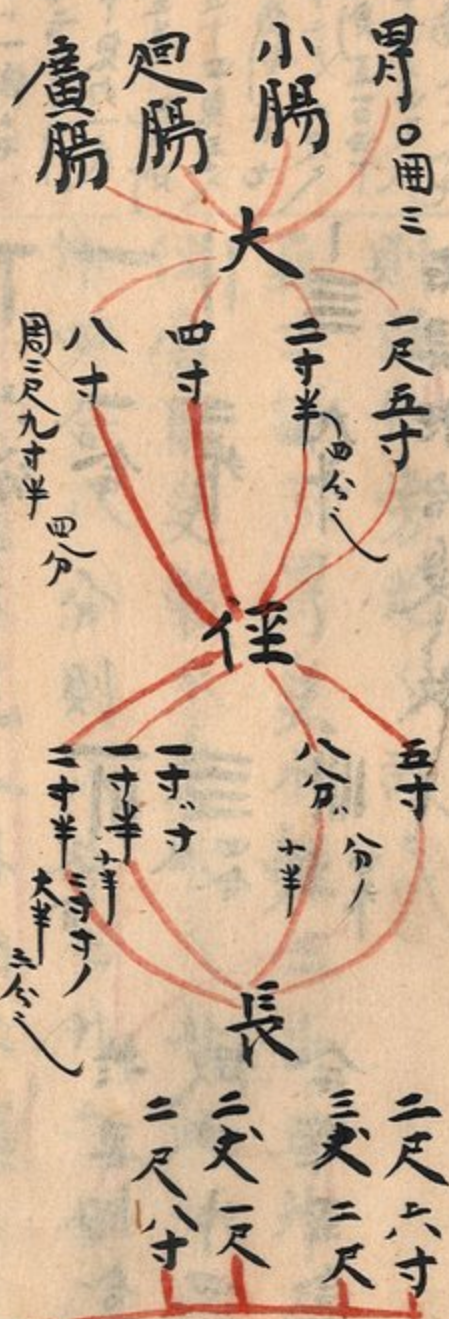 胃○囲三
小腸
廻腸
廣腸
大
一尺五寸
二寸半
四分之
四寸
八寸
周二尺九寸半
四分
径
五寸
八分
分ノ
小半
一寸
寸
一寸半
小半
二寸半
二寸寸ノ
大半
三分之
長
二尺六寸
三丈二尺
二丈一尺
二尺八寸